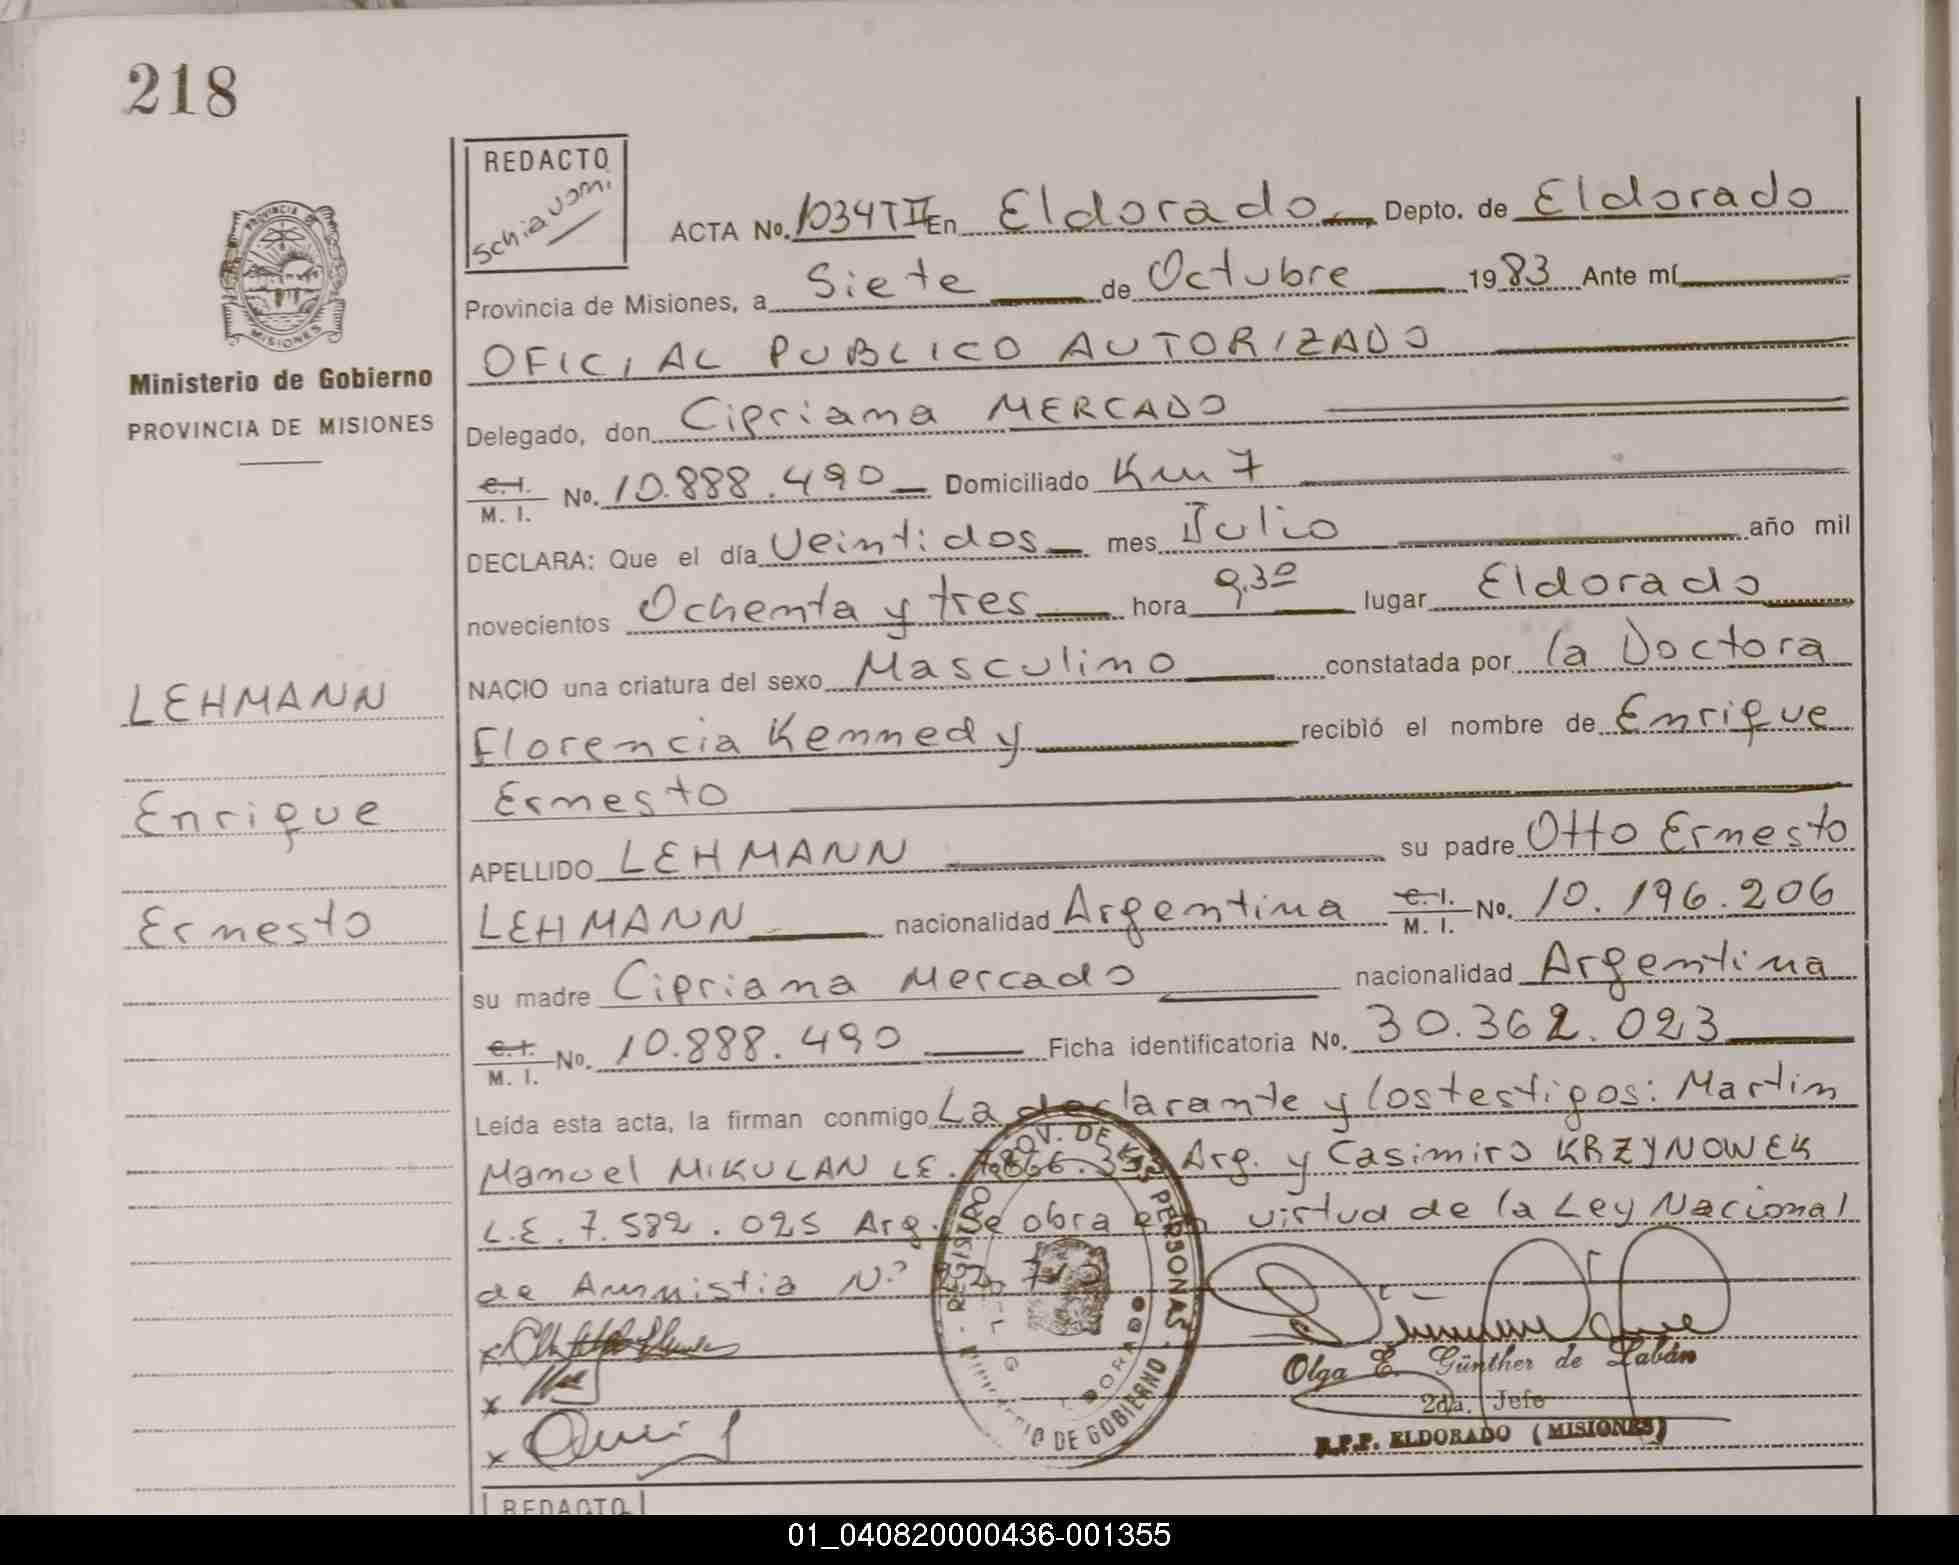 218
REDACTO
Schiavoni
PROVINCIA DE
MISIONES
Ministerio de Gobierno
PROVINCIA DE MISIONES
ACTA No. 1034TII En Eldorado Depto. de Eldorado
Provincia de Misiones, a Siete de Octubre 1983 Ante mí
OFICIAL PUBLICO AUTORIZADO
Delegado, don Cipriana MERCADO
C. I. / M. I. No. 10.888.490 Domiciliado Km 7
DECLARA: Que el día Veintidos mes Julio año mil
novecientos Ochenta y tres hora 9,30 lugar Eldorado
NACIO una criatura del sexo Masculino constatada por la Doctora
Florencia Kennedy recibió el nombre de Enrique
Ernesto
APELLIDO LEHMANN su padre Otto Ernesto
LEHMANN nacionalidad Argentina C. I. / M. I. No. 10.196.206
su madre Cipriana Mercado nacionalidad Argentina
C. I. / M. I. No. 10.888.490 Ficha identificatoria No. 30.362.023
Leída esta acta, la firman conmigo La declarante y los testigos: Martin
Manuel MIKULAN L.E. Arg. y Casimiro KRZYNOWEK
L.E. 7.582.025 Arg. Se obra en virtud de la Ley Nacional
de Amnistia N.º
LEHMANN
Enrique
Ernesto
REGISTRO PROV. DE LAS PERSONAS
MINISTERIO DE GOBIERNO
ELDORADO
Olga E. Günther de Labán
2da. Jefe
R.P.P. ELDORADO (MISIONES)
REDACTO
01_040820000436-001355